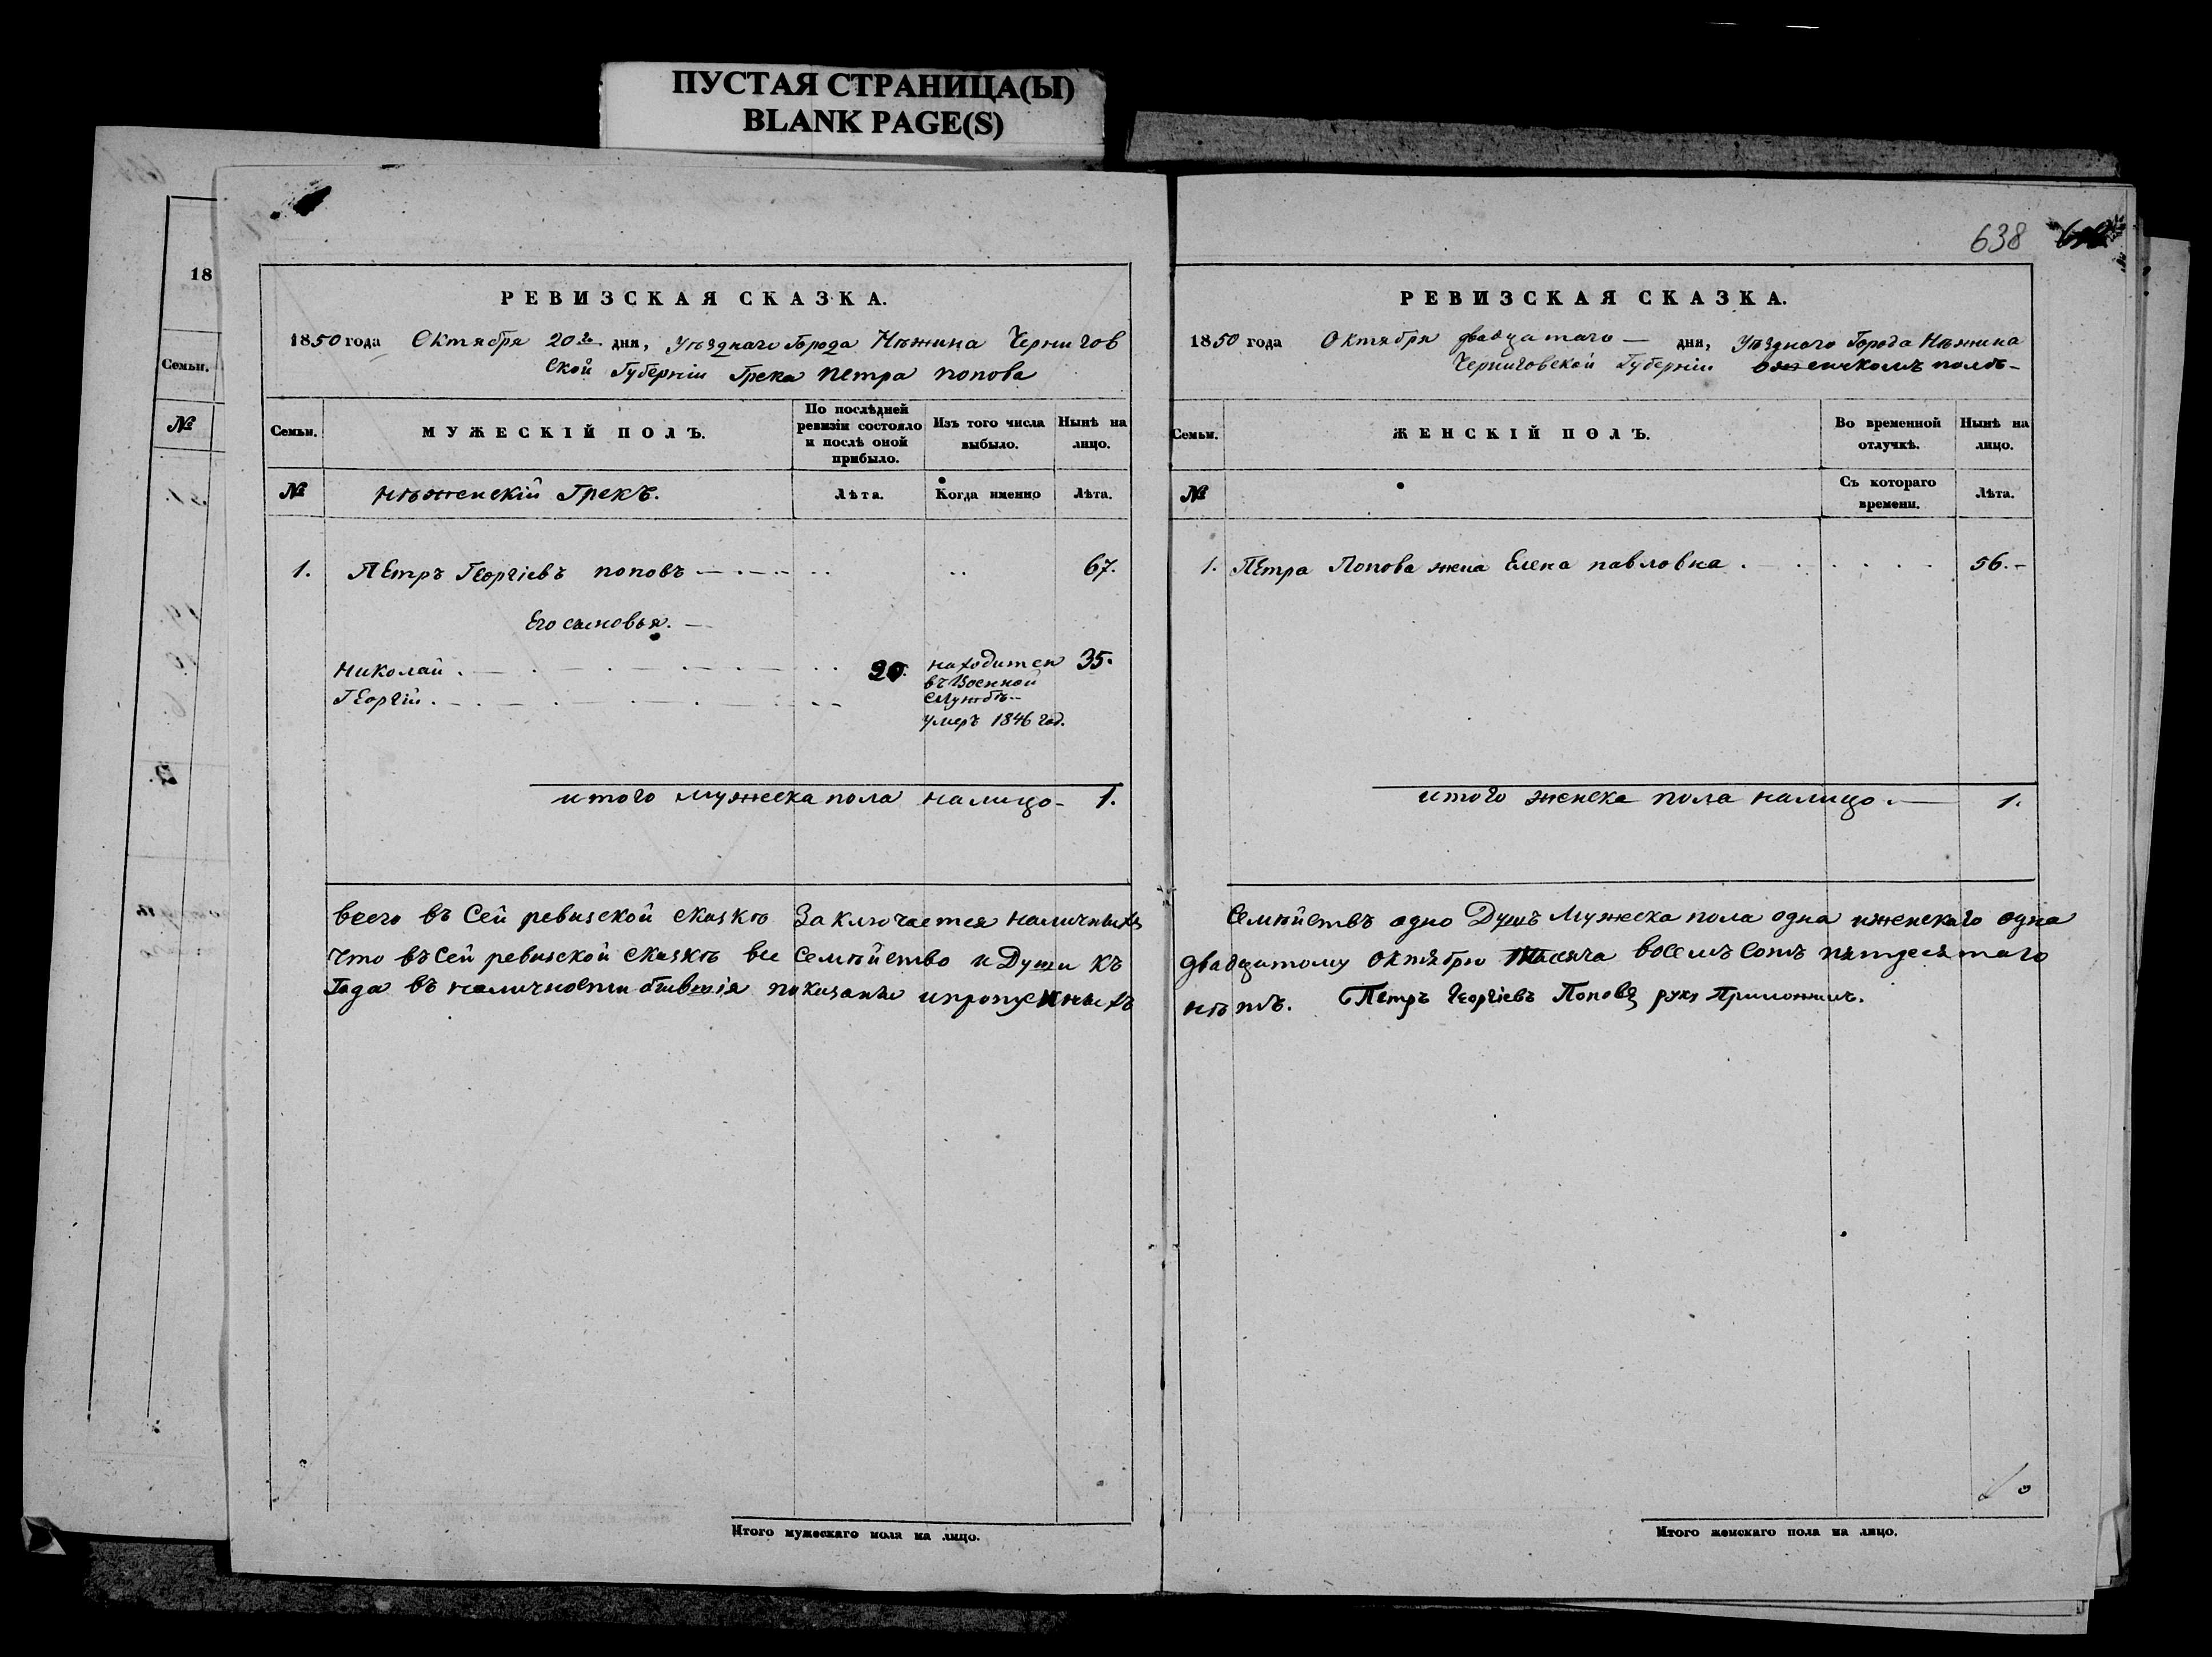 ПУСТАЯ СТРАНИЦА(Ы)
BLANK PAGE(S)
18
Семьи.
№
РЕВИЗСКАЯ СКАЗКА.
1850 года Октября 20го дня, уѣзднаго Города Нѣжина Чернигов
ской Губерніи Грека Петра Попова
Семьи.
МУЖЕСКІЙ ПОЛЪ.
По послѣдней ревизіи состояло и послѣ оной прибыло.
Изъ того числа выбыло.
Нынѣ на лицо.
№
нѣженскій Грекъ.
Лѣта.
Когда именно
Лѣта.
1. Петръ Георгіевъ поповъ 67.
Его сыновья.
Николай. 20. находится 35.
въ Военной
Георгій.
службѣ
умеръ 1846 год.
итого мужеска пола налицо 1.
всего въ сей ревизской сказкѣ Заключается наличныхъ
Что въ сей ревизской сказкѣ все Семѣйство и Души къ
Года въ наличности бывшія показаны и пропускныхъ
Итого мужескаго пола на лицо.
638
РЕВИЗСКАЯ СКАЗКА.
1850 года Октября двадцатаго — дня, уѣзднаго Города Нѣжина
Черниговской Губерніи о женскомъ полѣ
Семьи.
ЖЕНСКІЙ ПОЛЪ.
Во временной отлучкѣ.
Нынѣ на лицо.
№
Съ котораго времени.
Лѣта.
1. Петра Попова жена Елена павловна 56.
итого женска пола налицо. 1.
Семѣйствъ одно Душъ Мужеска пола одна и женскаго одна
двадцатому октября тысяча восемъ сотъ пятдесятаго
нѣтъ. Петръ Георгіевъ Поповъ руку Приложилъ.
Итого женскаго пола на лицо.